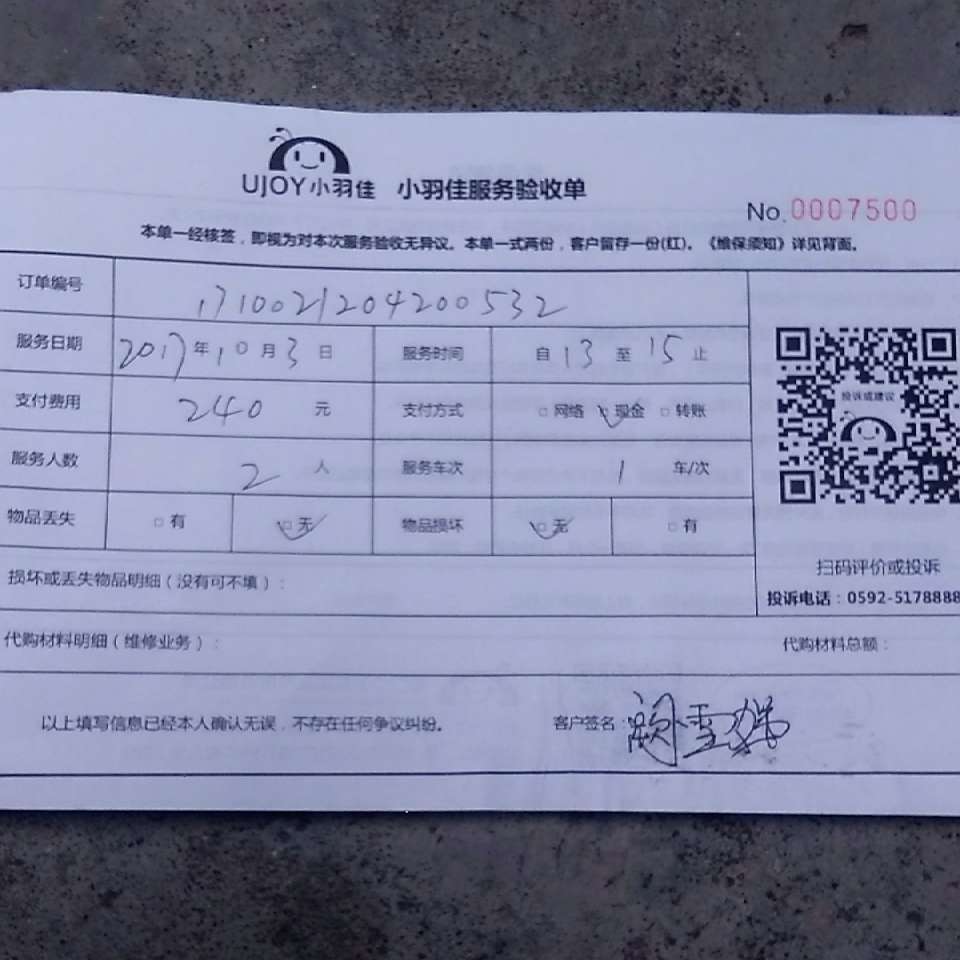 UJOY小羽佳 小羽佳服务验收单
No.0007500
本单一经核签，即视为对本次服务验收无异议。本单一式两份，客户留存一份(红)。《维保须知》详见背面。
订单编号 1710021204200532
服务日期 2017年10月3日 服务时间 自13至15止
支付费用 240元 支付方式 □网络 □现金 □转账
投诉或建议
服务人数 2人 服务车次 1车/次
物品丢失 □有 □无 物品损坏 □无 □有
扫码评价或投诉
损坏或丢失物品明细（没有可不填）：
投诉电话：0592-5178888
代购材料明细（维修业务）： 代购材料总额：
以上填写信息已经本人确认无误，不存在任何争议纠纷。 客户签名：